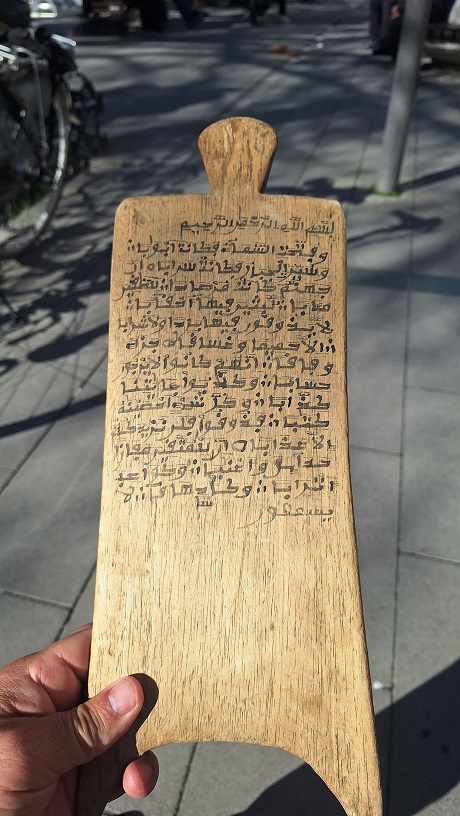 بسم الله الرحمن الرحيم
وفتحت السماء فكانت ابوبا
وسيرت الجبال فكانت سرابا ان
جهنم كانت مرصادا للطغين
مئابا لبثين فيها احقابا
لا يذوقون فيها بردا ولا شرابا
الا حميما وغساقا جزاء
وفاقا انهم كانوا لا يرجون
حسابا وكذبوا بئايتنا
كذابا وكل شيء احصينه
كتبا فذوقوا فلن نزيدكم
الا عذابا ان للمتقين مفازا
حدائق واعنبا وكواعب
اترابا وكاسا دهاقا لا
يسمعون